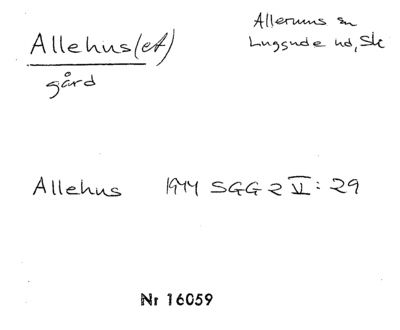 Allehus(et)
gård
Allerums sn
Luggude hd, Sk
Allehus 1944 SGG 2 V: 29
Nr 16059